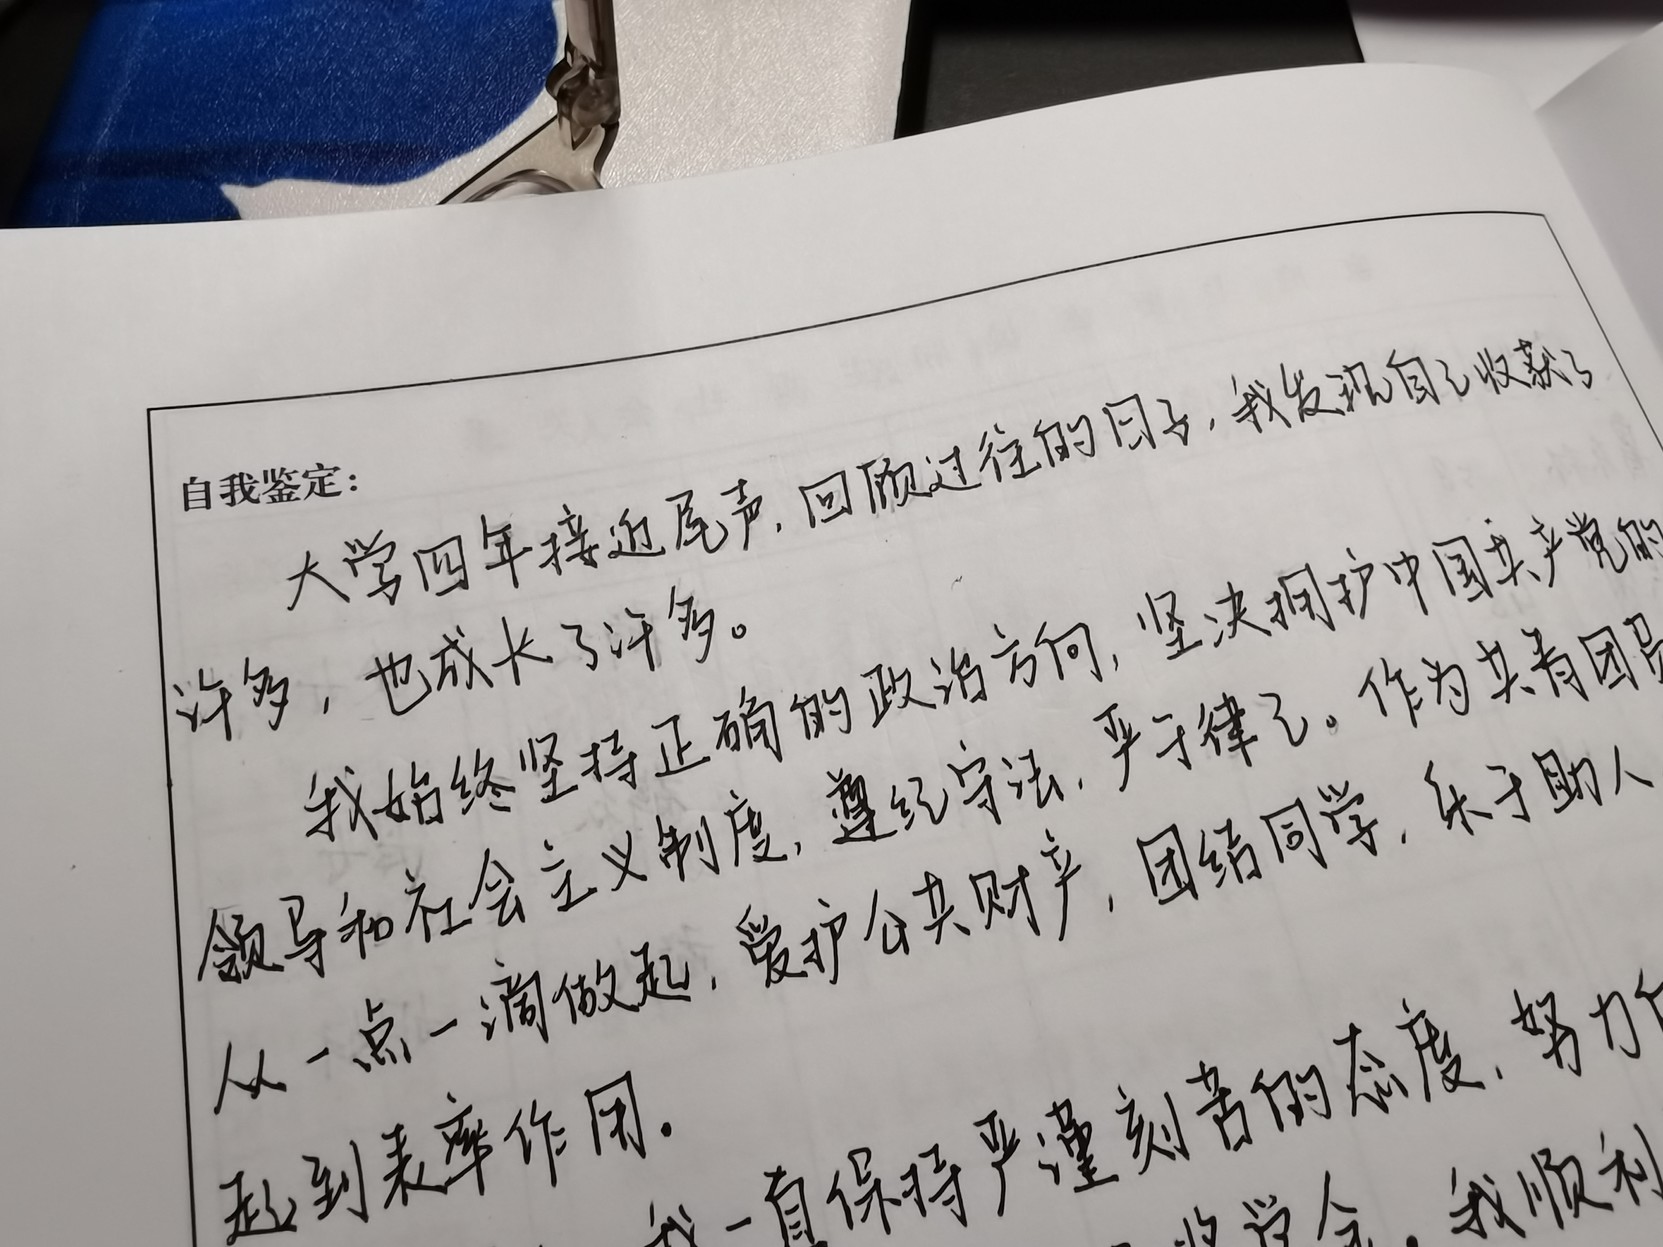 自我鉴定：
大学四年接近尾声，回顾过往的日子，我发现自己收获了
许多，也成长了许多。
我始终坚持正确的政治方向，坚决拥护中国共产党的
领导和社会主义制度，遵纪守法，严于律己。作为共青团员
从一点一滴做起，爱护公共财产，团结同学，乐于助人
起到表率作用。
我一直保持严谨刻苦的态度，努力
奖学金，我顺利